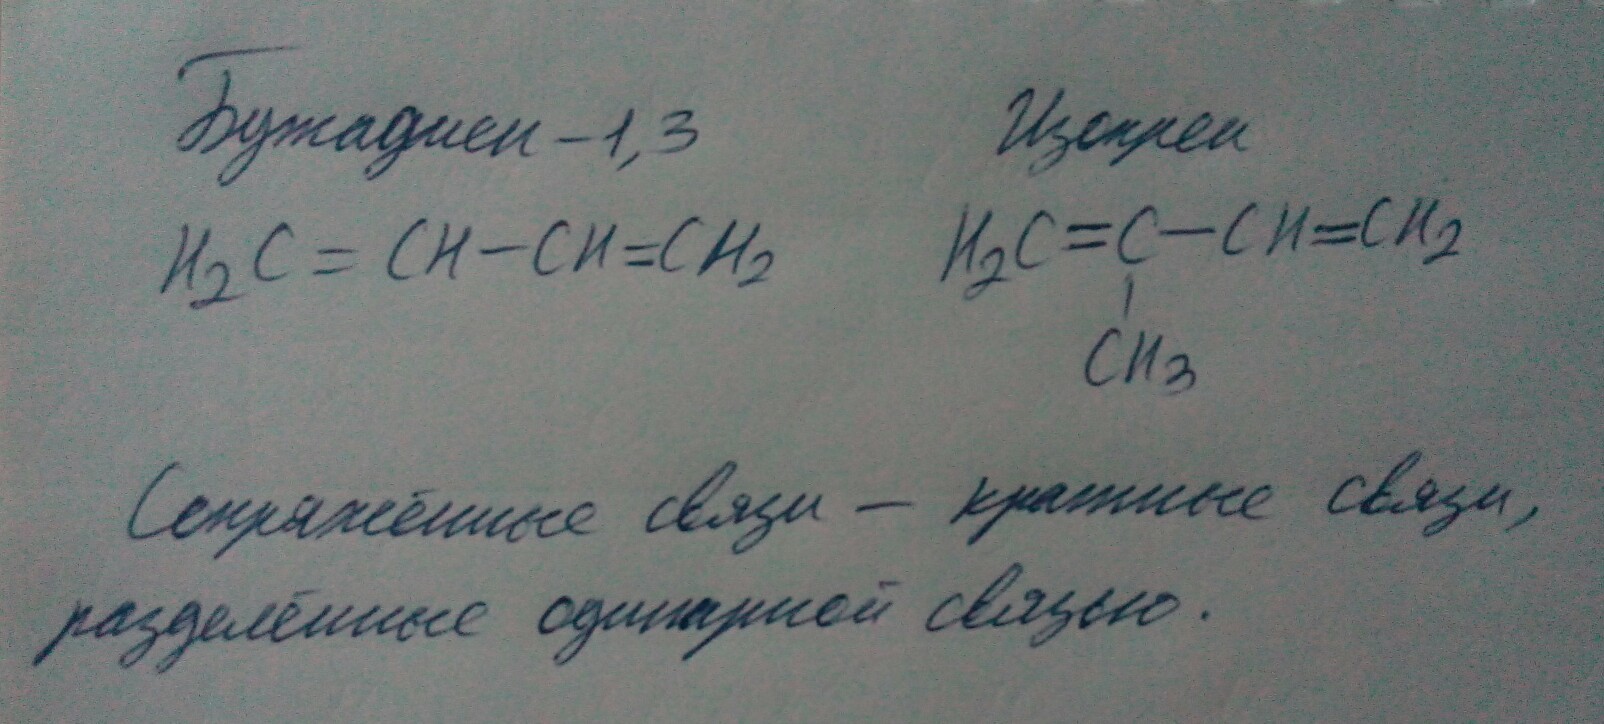 Бутадиен-1,3 Изопрен
H₂C=CH-CH=CH₂ H₂C=C-CH=CH₂
CH₃
Сопряжённые связи - кратные связи,
разделённые одинарной связью.